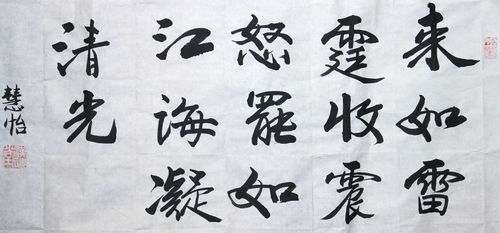 来如雷
霆收震
怒罷如
江海凝
清光
慧怡